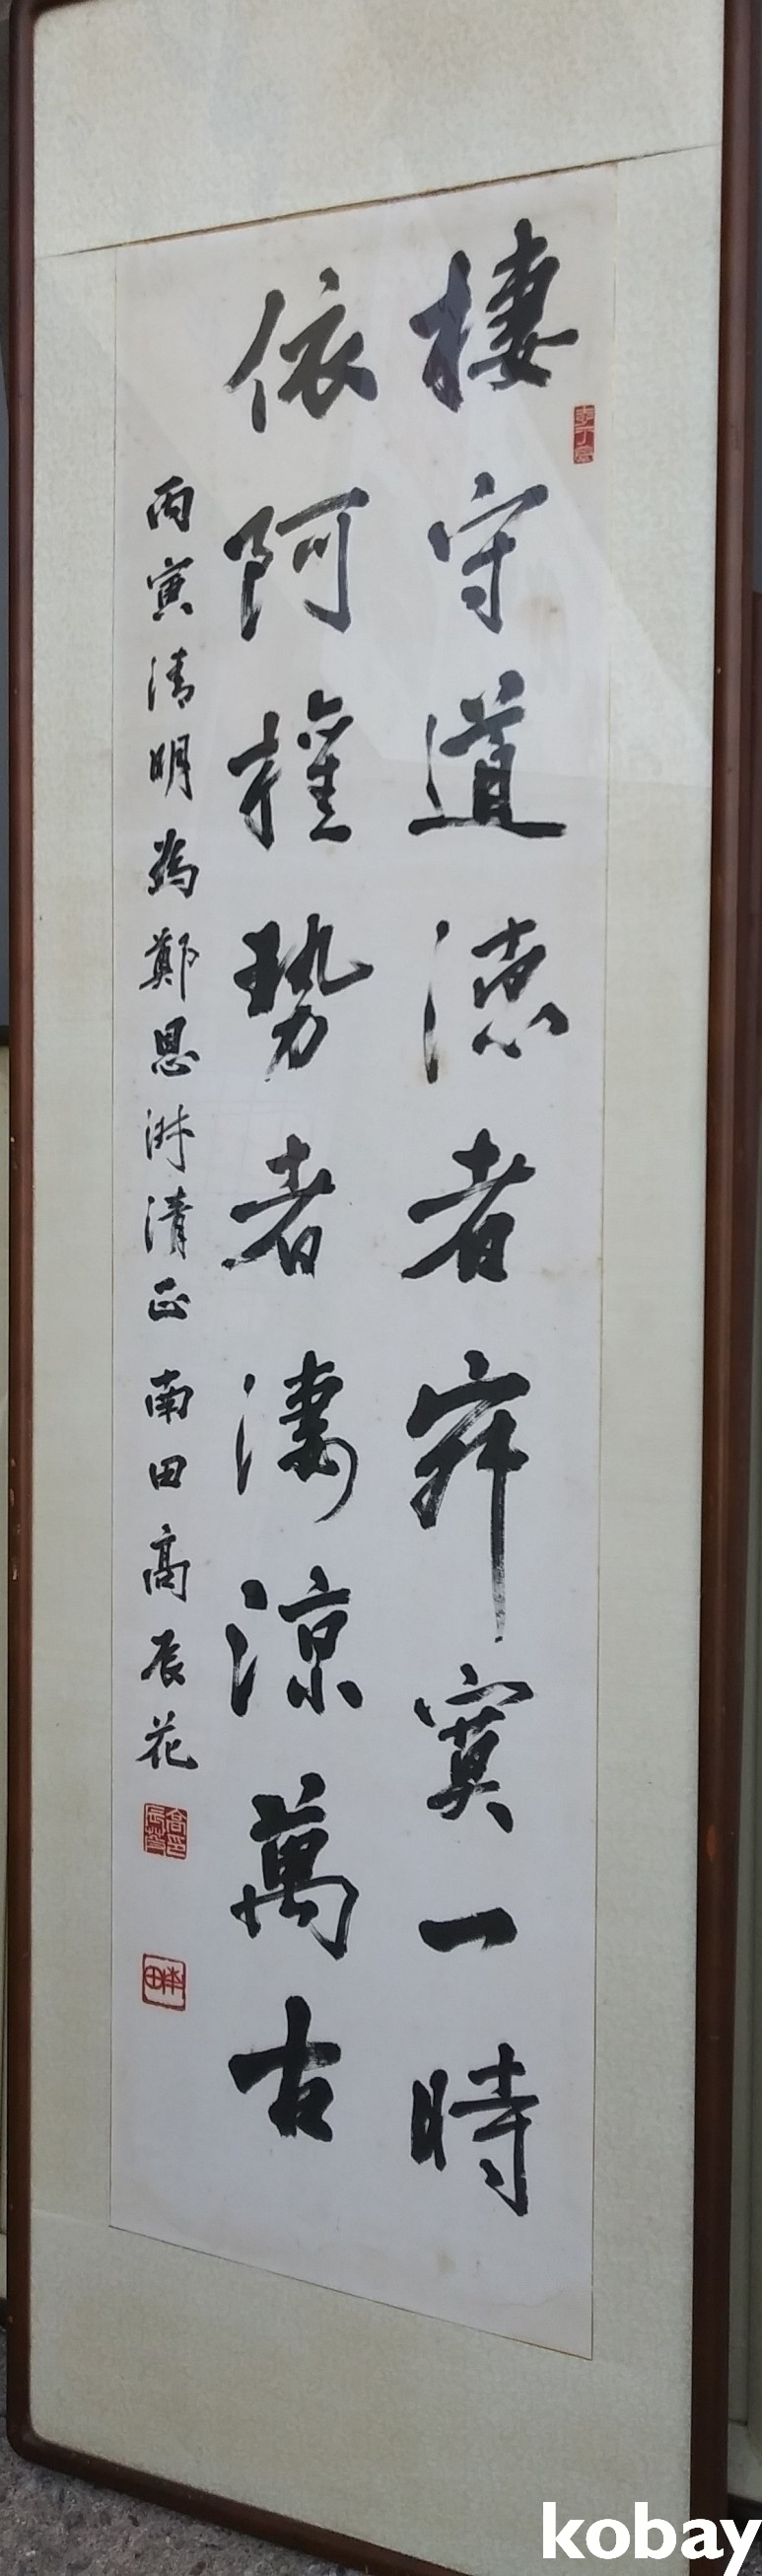 棲守道德者寂寞一時
依阿權勢者凄凉萬古
丙寅清明為鄭恩淋清正 南田 高辰花
kobay